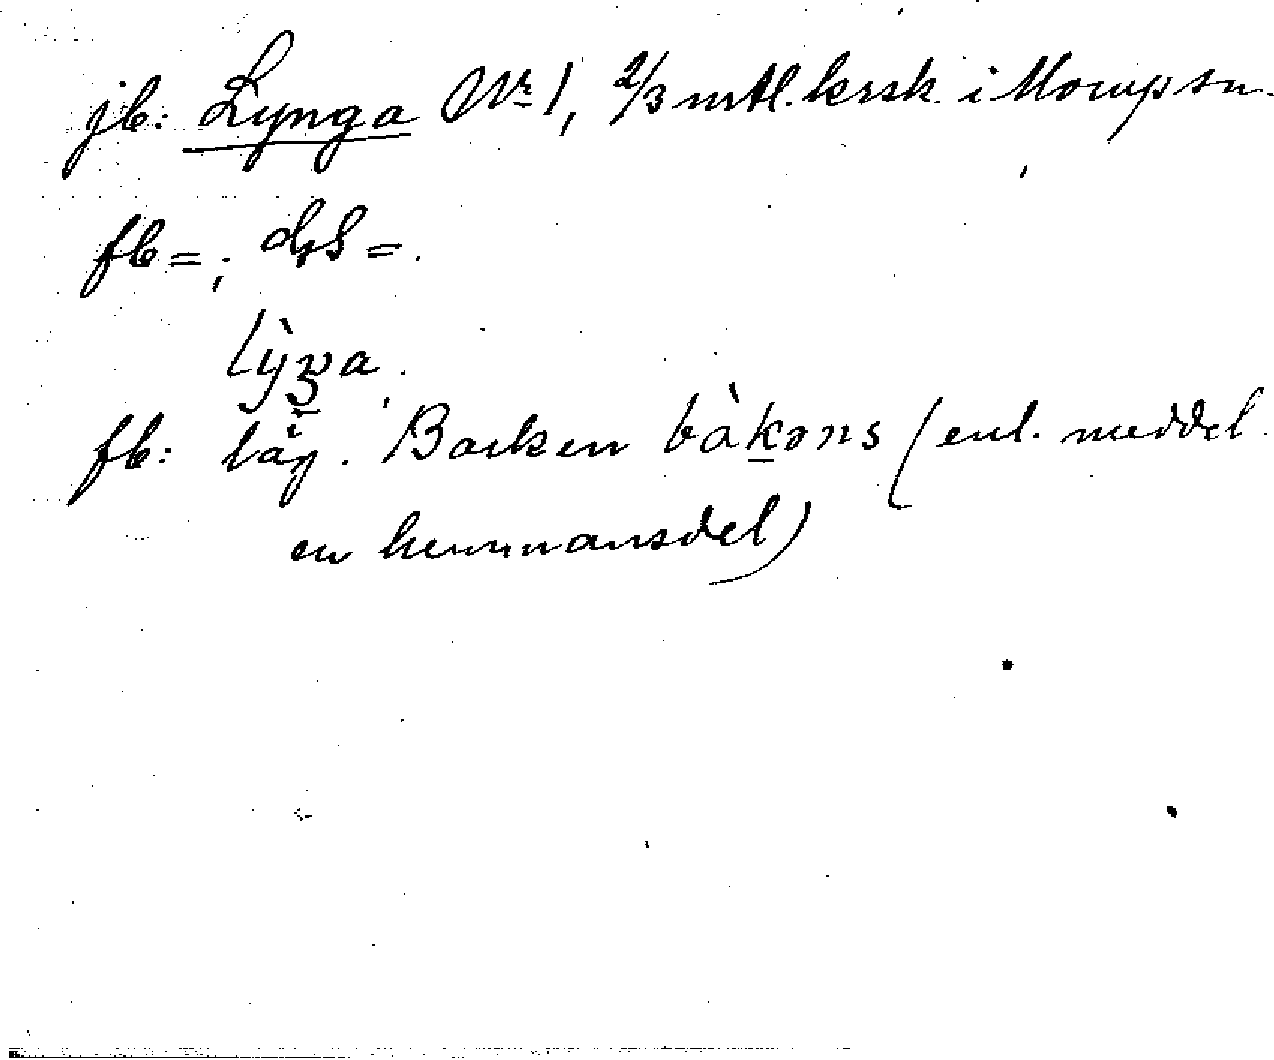 jb: Lynga Nr 1, 2/3 mtl. krsk i Morup sn.
fb = ; dgS = .
lỳŋa.
fb: läg. Backen bàkəns (enl. meddel.
en hemmansdel)